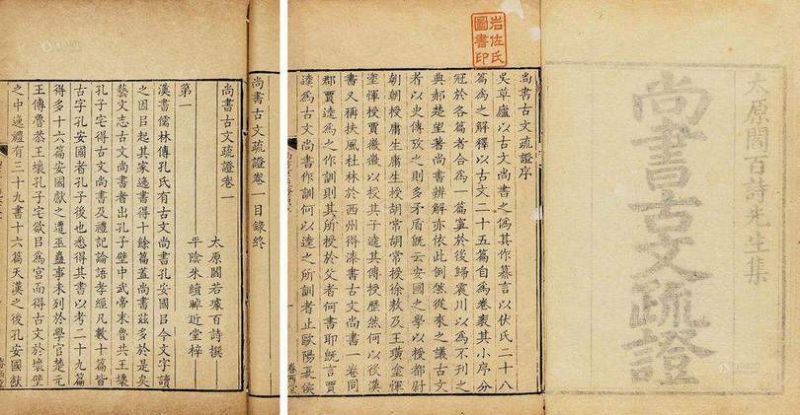 太原閻百詩先生集
尚書古文疏證
岩佐氏
圖書印
尚書古文疏證序
吳草廬以古文尚書之偽其作纂言以伏氏二十八
篇為之解釋以古文二十五篇自為卷袠其小序分
冠於各篇者合為一篇寘於後歸震川以為不刊之
典郝楚望著尚書辨解亦依此例然從來之議古文
者以史傳攷之則多矛盾旣云安國之學以授都尉
朝朝授庸生庸生授胡常胡常授徐敖及王璜塗惲
塗惲授賈徽徽以授其子逵其傳授歷然何以後漢
書又稱扶風杜林於西州得漆書古文尚書一卷同
郡賈逵為之作訓則其所授於父者何書耶旣言賈
逵為古文尚書作訓何以逵之所訓者止歐陽夏侯
尚書古文疏證卷一目錄終
尚書古文疏證卷一
太原閻若璩百詩撰
平陰朱續晫近堂梓
第一
漢書儒林傳孔氏有古文尚書孔安國㠯今文字讀
之因㠯起其家逸書得十餘篇蓋尚書茲多於是矣
藝文志古文尚書者出孔子壁中武帝末魯共王壞
孔子宅得古文尚書及禮記論語孝經凡數十篇皆
古字孔安國者孔子後也悉得其書以考二十九篇
得多十六篇安國獻之遭巫蠱事未列於學官楚元
王傳魯恭王壞孔子宅欲㠯為宮而得古文於壞壁
之中逸禮有三十九書十六篇天漢之後孔安國獻
眷西堂